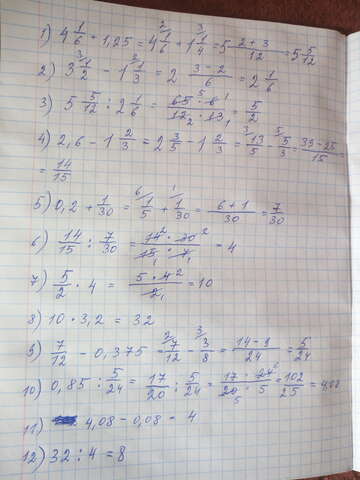 1) 4 1/6 + 1,25 = 4 1/6 + 1 1/4 = 5 2+3/12 = 5 5/12
2) 3 1/2 - 1 1/3 = 2 3-2/6 = 2 1/6
3) 5 5/12 : 2 1/6 = 65 · 6/12 · 13 = 5/2
4) 2,6 - 1 2/3 = 2 3/5 - 1 2/3 = 13/5 - 5/3 = 39-25/15 =
= 14/15
5) 0,2 + 1/30 = 1/5 + 1/30 = 6+1/30 = 7/30
6) 14/15 : 7/30 = 14 · 30/15 · 7 = 4
7) 5/2 · 4 = 5 · 4/2 = 10
8) 10 · 3,2 = 32
9) 7/12 - 0,375 = 7/12 - 3/8 = 14-9/24 = 5/24
10) 0,85 : 5/24 = 17/20 : 5/24 = 17 · 24/20 · 5 = 102/25 = 4,08
11) 4,08 - 0,08 = 4
12) 32 : 4 = 8